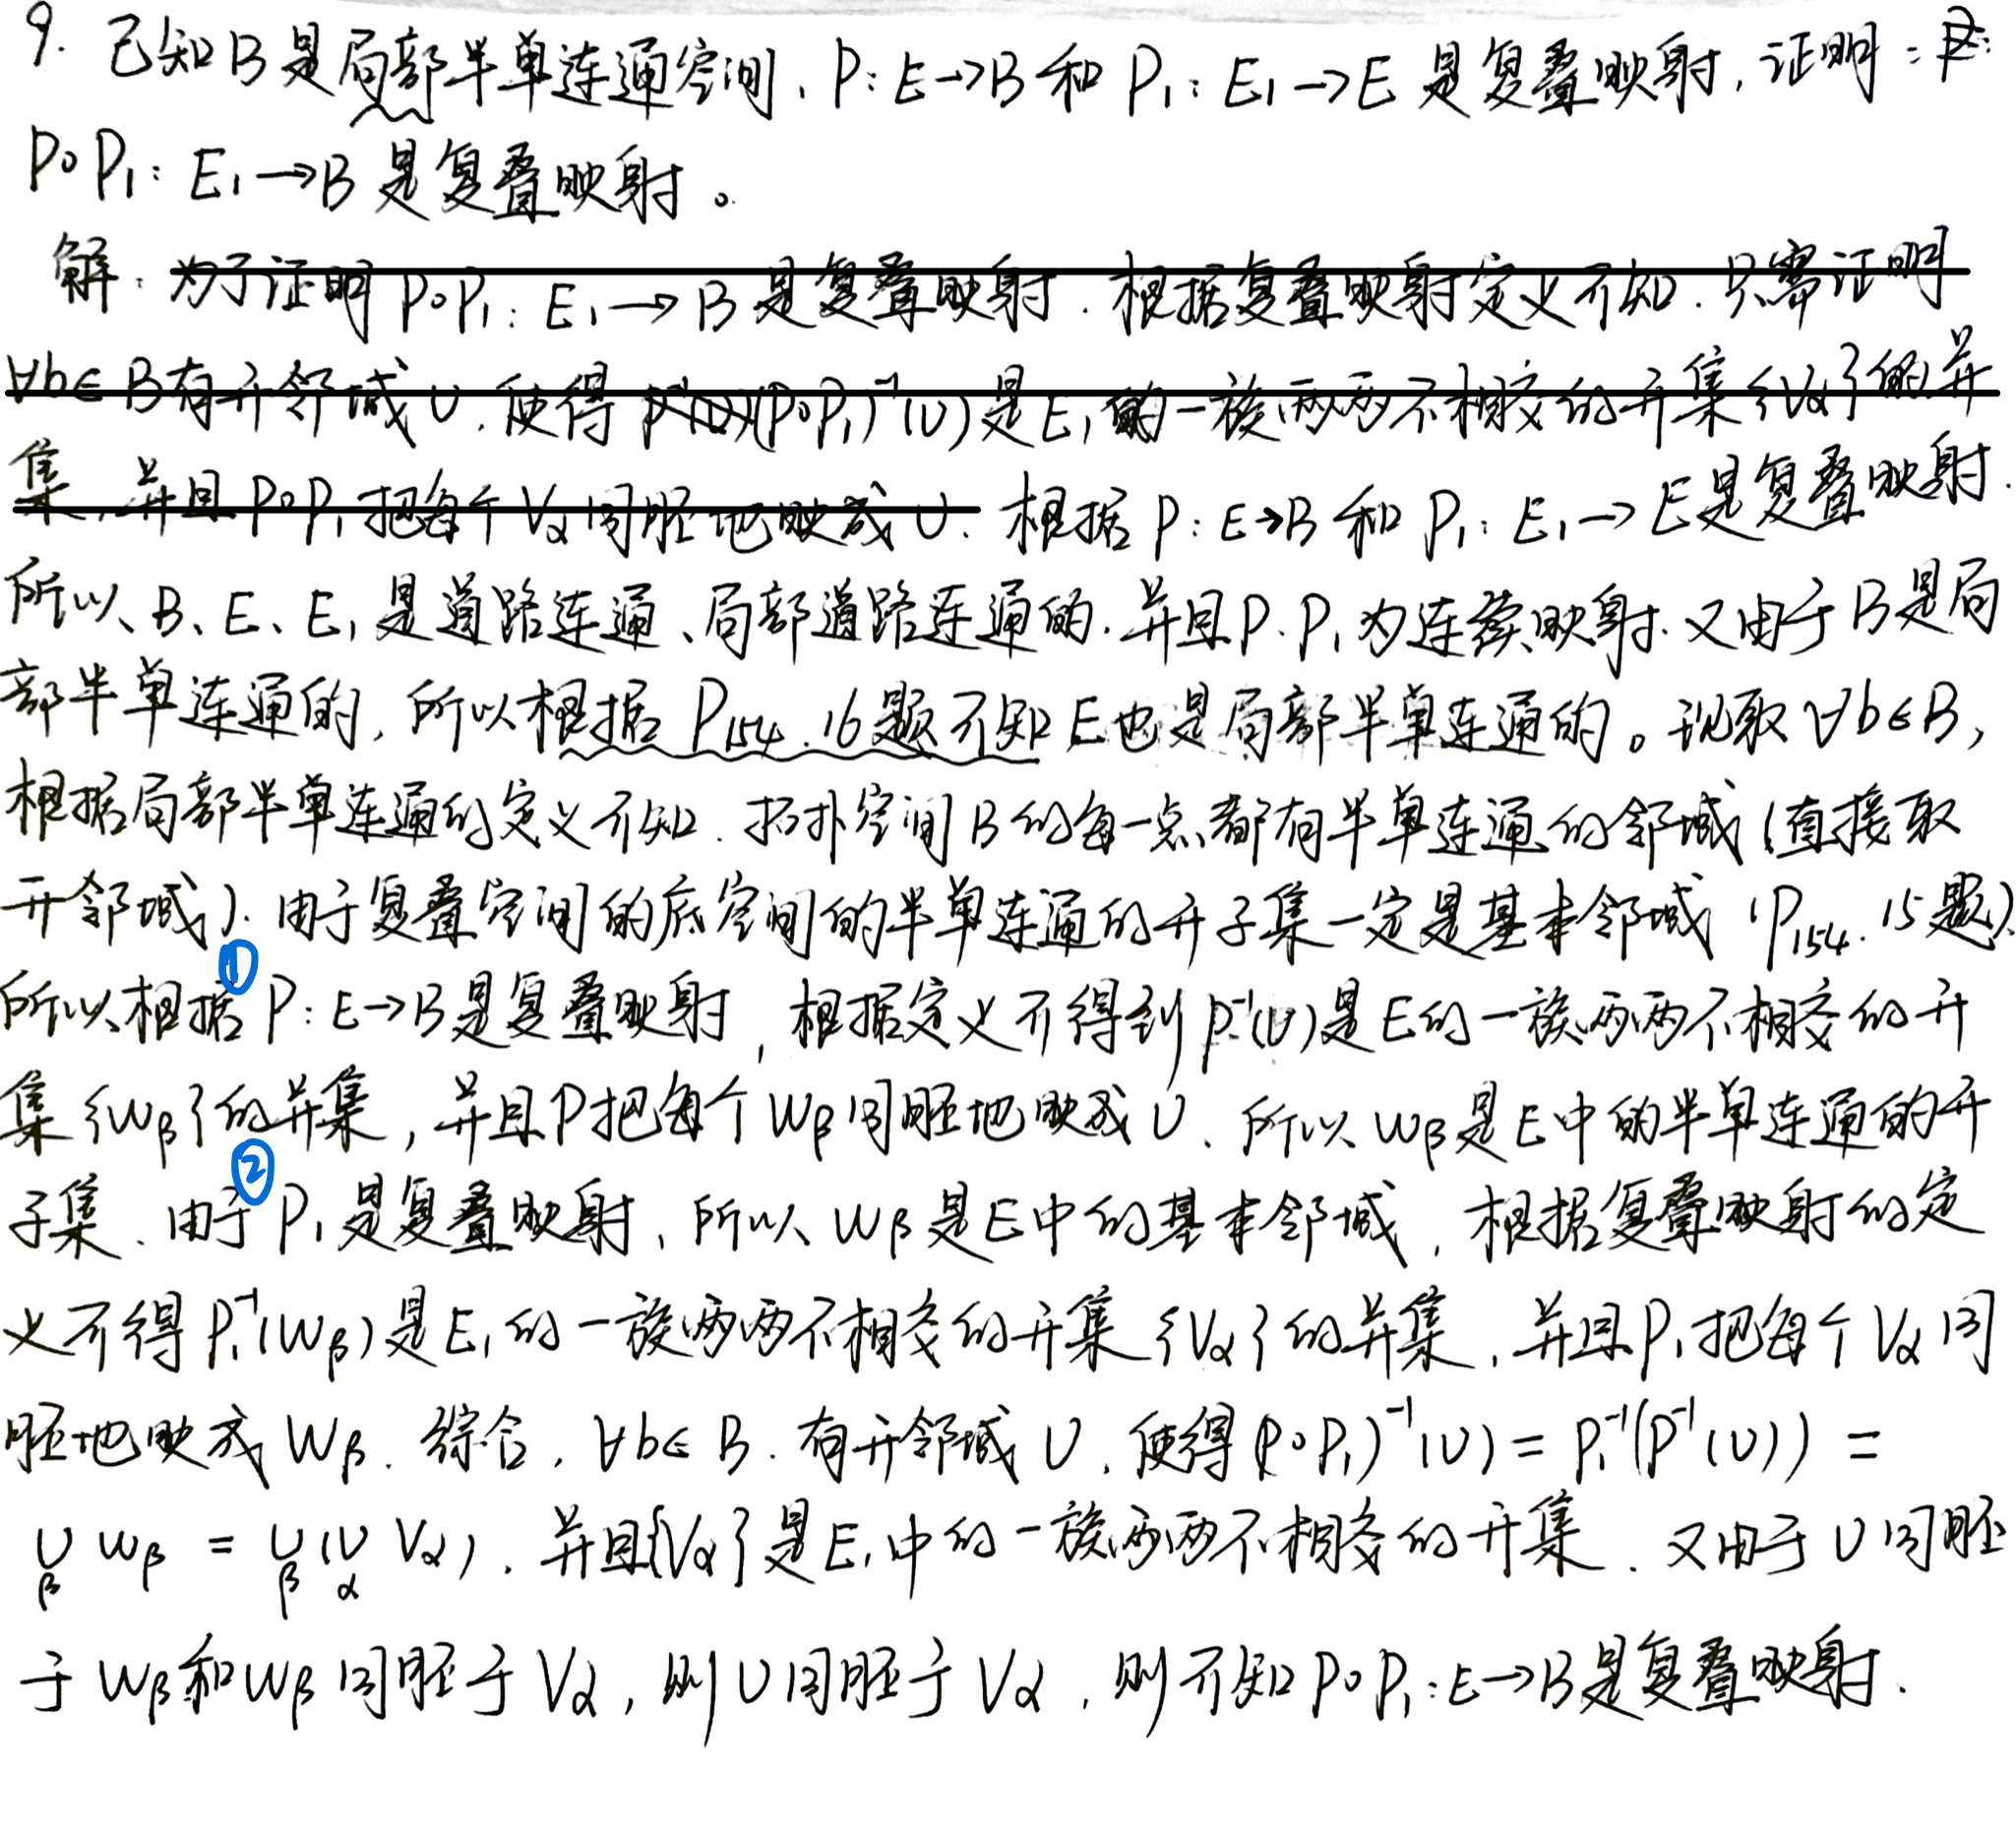 9. 已知B是局部半单连通空间, P: E→B 和 P₁: E₁→E 是复叠映射, 证明:
P∘P₁: E₁→B 是复叠映射。
解: 为了证明 P∘P₁: E₁→B 是复叠映射. 根据复叠映射定义可知. 只需证明
∀b∈B有开邻域U, 使得 (P∘P₁)⁻¹(U)是E₁的一族两两不相交的开集{Vα}的并
集, 并且P∘P₁把每个Vα同胚地映成U. 根据P: E→B 和 P₁: E₁→E是复叠映射.
所以、B、E、E₁是道路连通、局部道路连通的. 并且P. P₁为连续映射. 又由于B是局
部半单连通的, 所以根据 P154. 16题可知E也是局部半单连通的。现取∀b∈B,
根据局部半单连通的定义可知. 拓扑空间B的每一点都有半单连通的邻域(直接取
开邻域). 由于复叠空间的底空间的半单连通的开子集一定是基本邻域 (P154. 15题).
①
所以根据P: E→B是复叠映射, 根据定义可得到P⁻¹(U)是E的一族两两不相交的开
集{Wβ}的并集, 并且P把每个Wβ同胚地映成U. 所以Wβ是E中的半单连通的开
②
子集. 由于P₁是复叠映射, 所以Wβ是E中的基本邻域, 根据复叠映射的定
义可得P₁⁻¹(Wβ)是E₁的一族两两不相交的开集{Vα}的并集, 并且P₁把每个Vα同
胚地映成Wβ. 综合, ∀b∈B. 有开邻域U, 使得(P∘P₁)⁻¹(U) = P₁⁻¹(P⁻¹(U)) =
∪β Wβ = ∪β(∪α Vα). 并且{Vα}是E₁中的一族两两不相交的开集. 又由于U同胚
于Wβ和Wβ同胚于Vα, 则U同胚于Vα, 则可知P∘P₁: E→B是复叠映射.